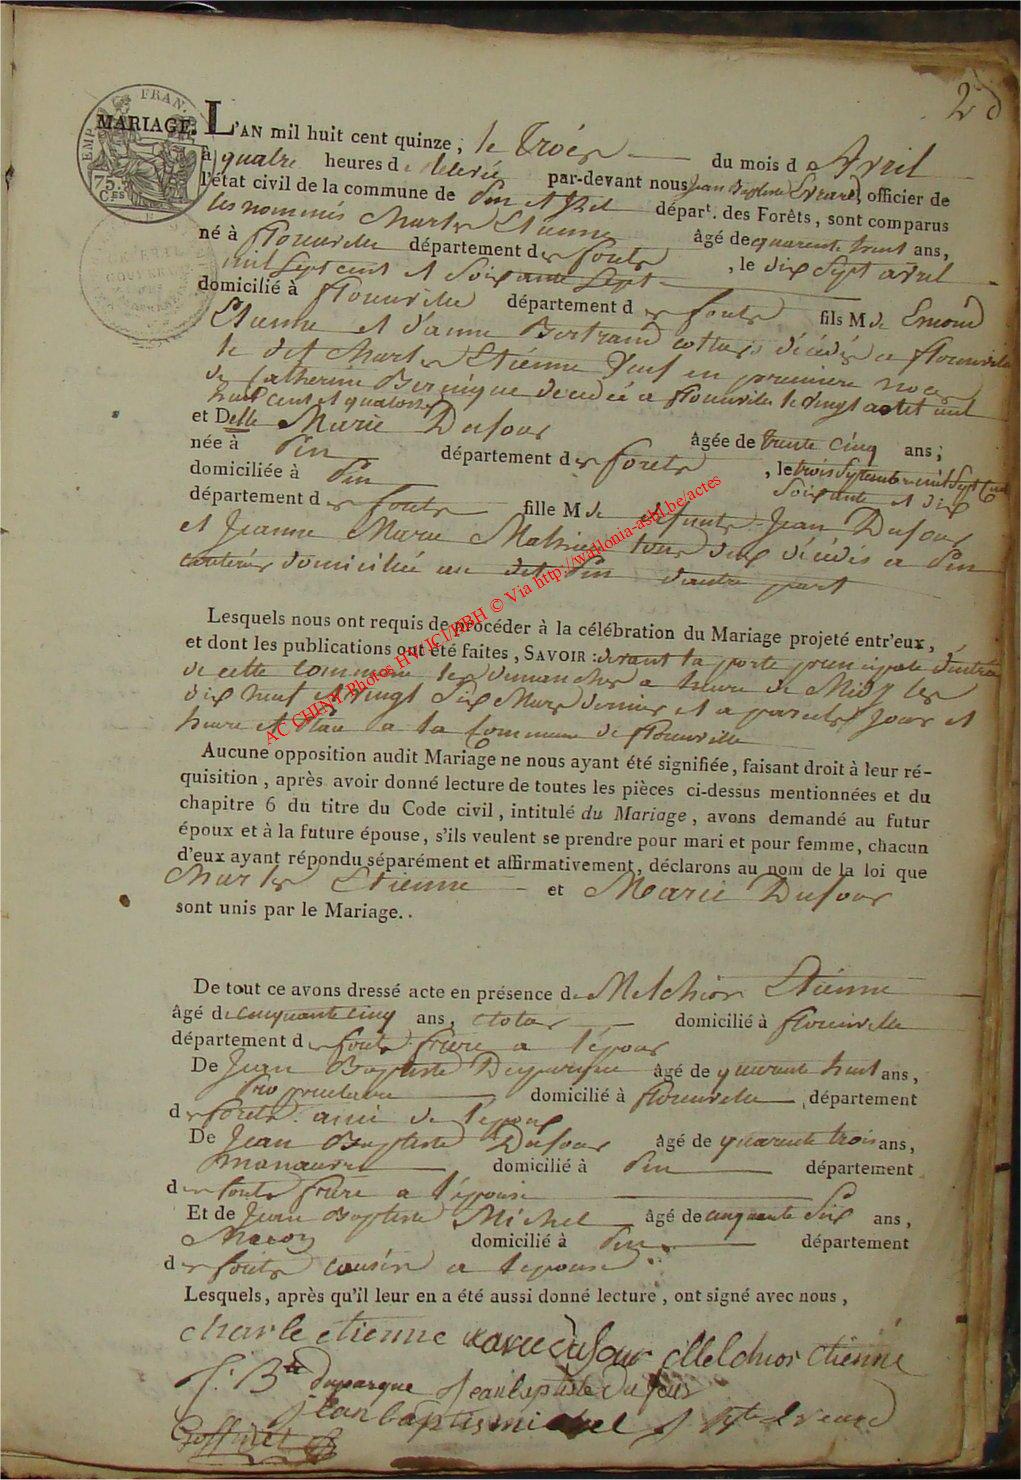 2d
EMP. FRAN.
75.
C.ES
MARIAGE. L'AN mil huit cent quinze, le Trois du mois d'Avril
à quatre heures de relevée par-devant nous Jean Baptiste Evrard, officier de
l'état civil de la commune de Pin et Izel départ. des Forêts, sont comparus
les nommés Charles Etienne âgé de quarente huit ans,
né à florenville département des forets, le dix sept avril
mil sept cent et soixante sept
domicilié à florenville département des forets fils M de Emond
Etienne et d'anne Bertrand décédés a florenville
le dit Charles Etienne Veuf en premiere noce
de Catherine décédée a florenville le vingt aout mil
huit cent et quatorze
et Delle Marie Dufour âgée de trente cinq ans;
née à Pin département des forets, le trois Septembre mil Sept Cent
domiciliée à Pin soixante et dix
département des forets fille M de défunts Jean Dufour
et Jeanne Marie tous deux décédés a Pin
domiciliée au dit Pin d'autre part
Lesquels nous ont requis de procéder à la célébration du Mariage projeté entr'eux,
et dont les publications ont été faites, SAVOIR: devant la porte principale d'entrée
de cette Commune les dimanches a heure de Midy les
dix neuf et vingt Six Mars dernier et a pareils Jour et
heure et a la Commune de florenville
Aucune opposition audit Mariage ne nous ayant été signifiée, faisant droit à leur ré-
quisition, après avoir donné lecture de toutes les pièces ci-dessus mentionnées et du
chapitre 6 du titre du Code civil, intitulé du Mariage, avons demandé au futur
époux et à la future épouse, s'ils veulent se prendre pour mari et pour femme, chacun
d'eux ayant répondu séparément et affirmativement, déclarons au nom de la loi que
Charles Etienne et Marie Dufour
sont unis par le Mariage..
De tout ce avons dressé acte en présence de Melchior Etienne
âgé de cinquante cinq ans, domicilié à florenville
département des forets frere a l'epoux
De Jean Baptiste Duparque âgé de quarante huit ans,
Proprietaire domicilié à florenville, département
des forets ami de l'epoux
De Jean Baptiste Dufour âgé de quarante trois ans,
manœuvre domicilié à Pin département
des forets frere a l'épouse
Et de Jean Baptiste Michel âgé de cinquante Six ans,
Macon domicilié à Pin département
des forets cousin a l'epouse
Lesquels, après qu'il leur en a été aussi donné lecture, ont signé avec nous,
charle etienne marie dufour Melchior etienne
J. Bte duparque Jean baptiste dufour
jean baptis michel J Bte Evrard
Goffinet
AC CHINY Photos HV ICI/PBH © Via http://wallonia-asbl.be/actes